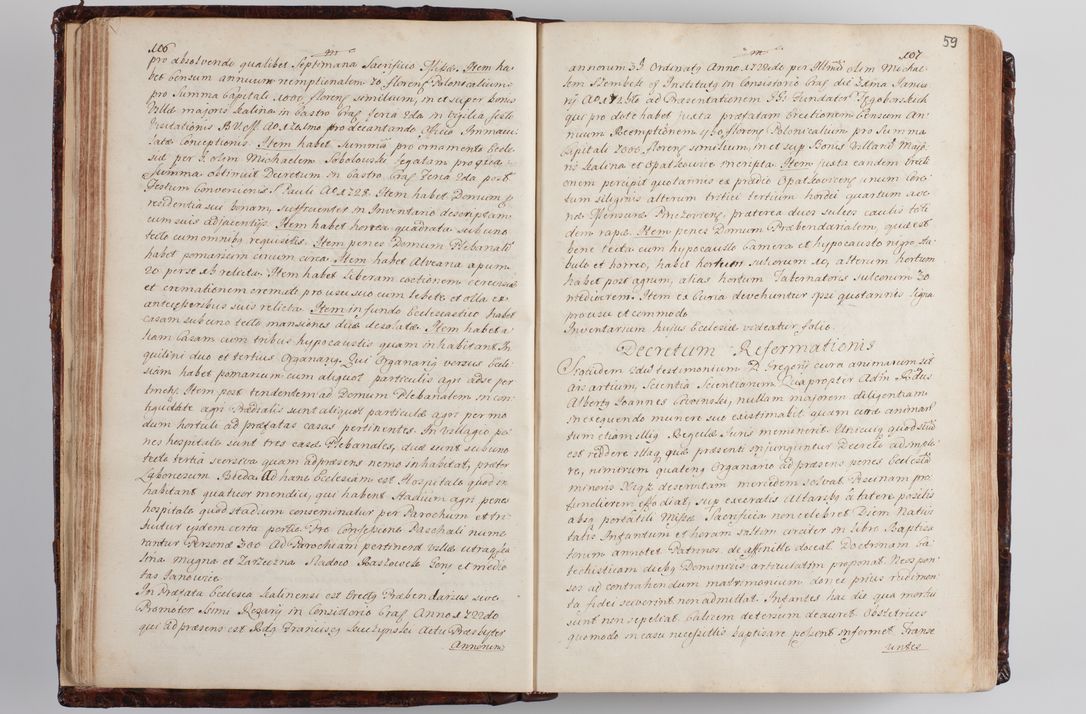 106
pro absolvendo qualibet Septimana Sacrificio Missæ. Item ha-
bet Censum annuum reemptionalem 70 florenos Polonicalium
pro Summa capitali 1000 floreng similium, in et super bonis
Villæ majoris Kalina in Castro Crac. Feria 2da in vigilia festi
Visitationis B.V.M. Ao. pro decantando Officio Immacu-
latæ Conceptionis. Item habet Summā pro ornamento Eccle-
siæ per G. olim Michaelem Sobolowski legatam pro qua
Summa obtinuit Decretum in Castro Crac Feria 2da post
Festum Conversionis S. Pauli Ao. 1728. Item habet Domum p
residentia sui bonam, sufficienter in Inventario descriptam
cum suis adjacentijs. Item habet horrea quadrata sub uno
tecto cum omnibg requisitis. Item penes Domum Plebanalē
habet pomarium circum circa. Item habet Alvearia apum
20 per se relicta. Item habet liberam coctionem cerevisiæ
et cremationem cremati pro usu suo cum lebete et olla ex
antecessoribus suis relicta. Item in fundo Ecclesiastico habet
casam sub uno tecto mansiones duæ desolatæ. Item habet a-
liam Casam cum tribus hypocaustis quam inhabitant In-
quilini duo et tertius Organarig. Qui Organarig versus Eccle-
siam habet pomarium cum aliquot particulis agri ad se per
tinentg. Item post tendentem ad Domum Plebanalem in con-
tiguitate agri Prædialis sunt aliquot particulæ agri per mo-
dum hortuli ad præfatas casas pertinentes. In Villagio pe-
nes hospitale sunt tres casæ Plebanales, duæ sunt sub uno
tecto tertia seorsiva quam ad præsens nemo inhabitat, præter
Laboriosum Bieda. Ad hanc Ecclesiam est Hospitale quod in-
habitant quatuor mendici, qui habent Stadium agri penes
hospitale quod stadium conseminatur per Parochum et tri-
buitur ejsdem certa portio. Pro Confessione Paschali nume
rantur Personæ 300. Ad Parochiam pertinent Villæ utraqg Ca-
lina magna et Zarzeczna
tas Janowice
In Præfata Ecclesia Kalinensi est Erectg Præbendarius sive
Promotor Ssmi Rosarij in Consistorio Crac Anno 1722do
qui ad præsens est Rdg Franciscg Actu Præsbyter
Annorum
107
59
annorum 31 Ordinatg Anno 1722do per Illmū olim Michae-
lem Szembek Institutg in Consistorio Crac die Janua
rij ad Præsentationem Fundator
qui pro dote habet juxta præfatam Erectionem Censum An-
nuum Reemptionem 490 floreng Polonicalium pro Summa
Capitali 7000 floreng similium, in et sup Bonis Villarū Majo-
ris Kalina et Opatkowice inscripta. Item juxta eandem Erecti
onem percipit quotannis ex prædio Opatkoviceng unum core-
tum siliginis alterum tritici tertium hordei quartum ave
næ Mensuræ præterea duos sulcos caulis toti
dem rapæ. Item penes Domum Præbendarialem, quæ est
bene tecta cum hypocausto Camera et hypocausto nigro sta-
bulo et horreo, habet hortum sulcorum 10, alterum hortum
habet post agrum, alias hortum Tabernatoris sulcorum 30
mediocrem. Item ex Curia devehuntur ipsi quotannis ligna
pro usu et commodo
Inventarium hujus Ecclesiæ videatur folio.
Decretum Reformationis
Siquidem testimonium D. Gregorij cura animarum sit
Ars artium, Scientia Scientiarum. Quapropter Adm. Rndus
Albertg Joannes nullam majorem diligentiam
in exequendo munere suo existimabit quam curæ animar
tum etiam illig Regulæ Juris meminerit. Unicuig quod suū
est reddere illaqg quæ præsenti injungintur Decreto adimple-
re, nimirum quateng Organario ad præsens penes Ecclesiā
minoris deservitam mercedem solvat. Piscinam pro
fundiorem effodiat, sup execratis Altaribg à latere positis
absqg portatili Missæ Sacrificia non celebret. Diem Nativi
tatis Infantum et horam saltim circiter in libro Baptiza
torum annotet. Patrinos de affinitte doceat. Doctrinam Ca-
techisticam diebg Dominicis articulatim proponat. Neo spon-
sos ad contrahendum matrimonium donec prius rudimen
ta fidei sciverint non admittat. Infantes hac die qua mortui
sunt non sepeliat. Calicem detersum deauret. Obstetrices
quomodo in casu necessittis baptizare possent informet. Transe
untes